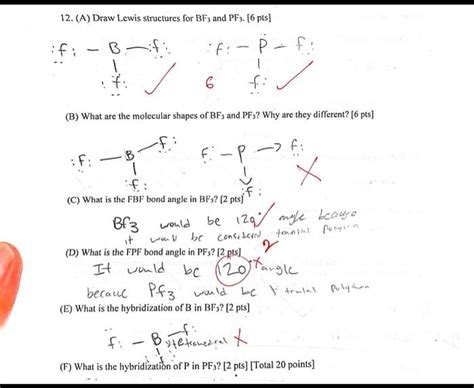 12. (A) Draw Lewis structures for BF₃ and PF₃. [6 pts]
:f: – B – :f: :f: – P – f:
:f: 6 f:
(B) What are the molecular shapes of BF₃ and PF₃? Why are they different? [6 pts]
:f: – B – f: f: – P → f:
:f: f:
(C) What is the FBF bond angle in BF₃? [2 pts]
Bf3 would be 120° angle because
it would be considered
(D) What is the FPF bond angle in PF₃? [2 pts] 2
It would be 120° angle
because Pf3 would be
(E) What is the hybridization of B in BF₃? [2 pts]
f: – B – f:
f:
(F) What is the hybridization of P in PF₃? [2 pts] [Total 20 points]